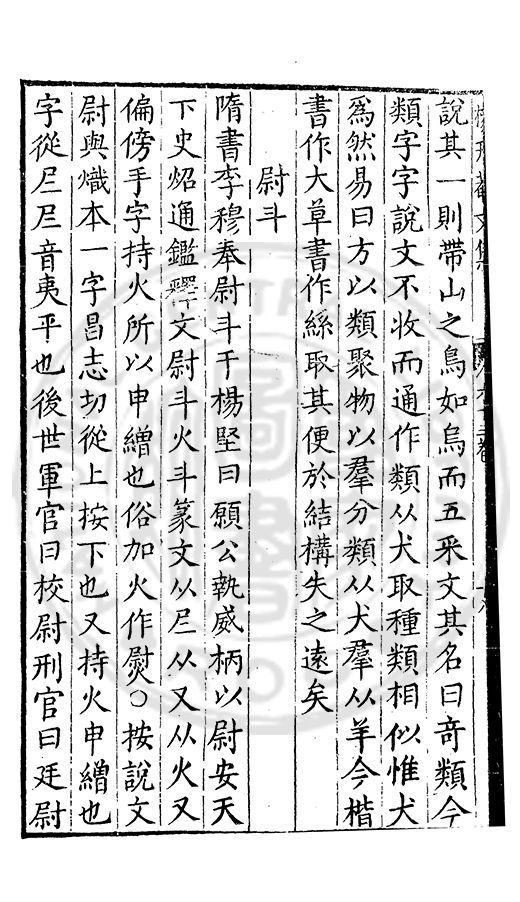 說其一則帶山之鳥如烏而五采文其名曰奇類今
類字字說文不收而通作類从犬取種類相似惟犬
為然易曰方以類聚物以羣分類从犬羣从羊今楷
書作大草書作絲取其便於結構失之遠矣
尉斗
隋書李穆奉尉斗于楊堅曰願公執威柄以尉安天
下史炤通鑑釋文尉斗火斗篆文从𡰥从又从火又
偏傍手字持火所以申繒也俗加火作熨○按說文
尉與熾本一字昌志切從上按下也又持火申繒也
字從𡰥𡰥音夷平也後世軍官曰校尉刑官曰廷尉